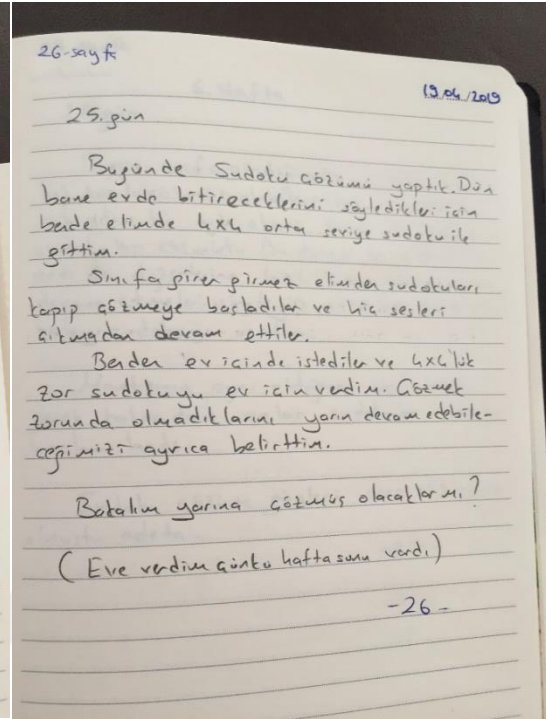 26-sayfa
19.04.2019
25.gün
Bugünde Sudoku çözümü yaptık. Dün
bane evde bitireceklerini söyledikleri için
bende elimde 4x4 orta seviye sudoku ile
gittim.
Sınıfa girer girmez elimden sudokuları
kapıp çözmeye başladılar ve hiç sesleri
çıkmadan devam ettiler.
Benden ev içinde istediler ve 4x4'lük
zor sudokuyu ev için verdim. Çözmek
zorunda olmadıklarını yarın devam edebile-
ceğimizi ayrıca belirttim.
Bakalım yarına çözmüş olacaklar mı?
(Eve verdim çünkü haftasonu vardı)
-26-